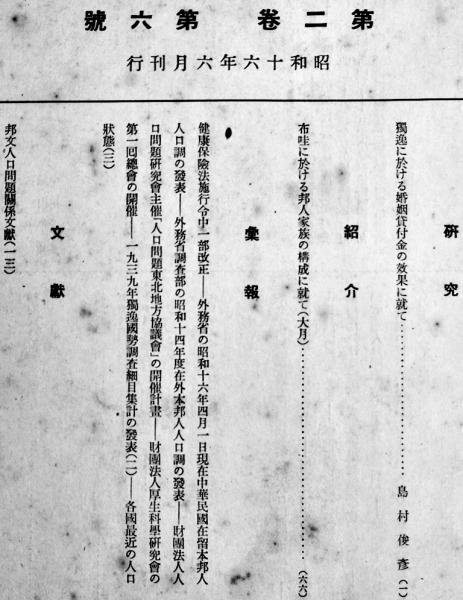 第二卷 第六號
昭和十六年六月刊行
研究
獨逸に於ける婚姻貸付金の效果に就て……………………島村俊彥(一)
紹介
布哇に於ける邦人家族の構成に就て(大月)……………………(六六)
彙報
健康保險法施行令中一部改正――外務省の昭和十六年四月一日現在中華民國在留本邦人
人口調の發表――外務省調査部の昭和十四年度在外本邦人人口調の發表――財團法人人
口問題硏究會主催「人口問題東北地方協議會」の開催計畫――財團法人厚生科學硏究會の
第一回總會の開催――一九三九年獨逸國勢調査細目集計の發表(二)――各國最近の人口
狀態(三)
文獻
邦文人口問題關係文獻(一三)